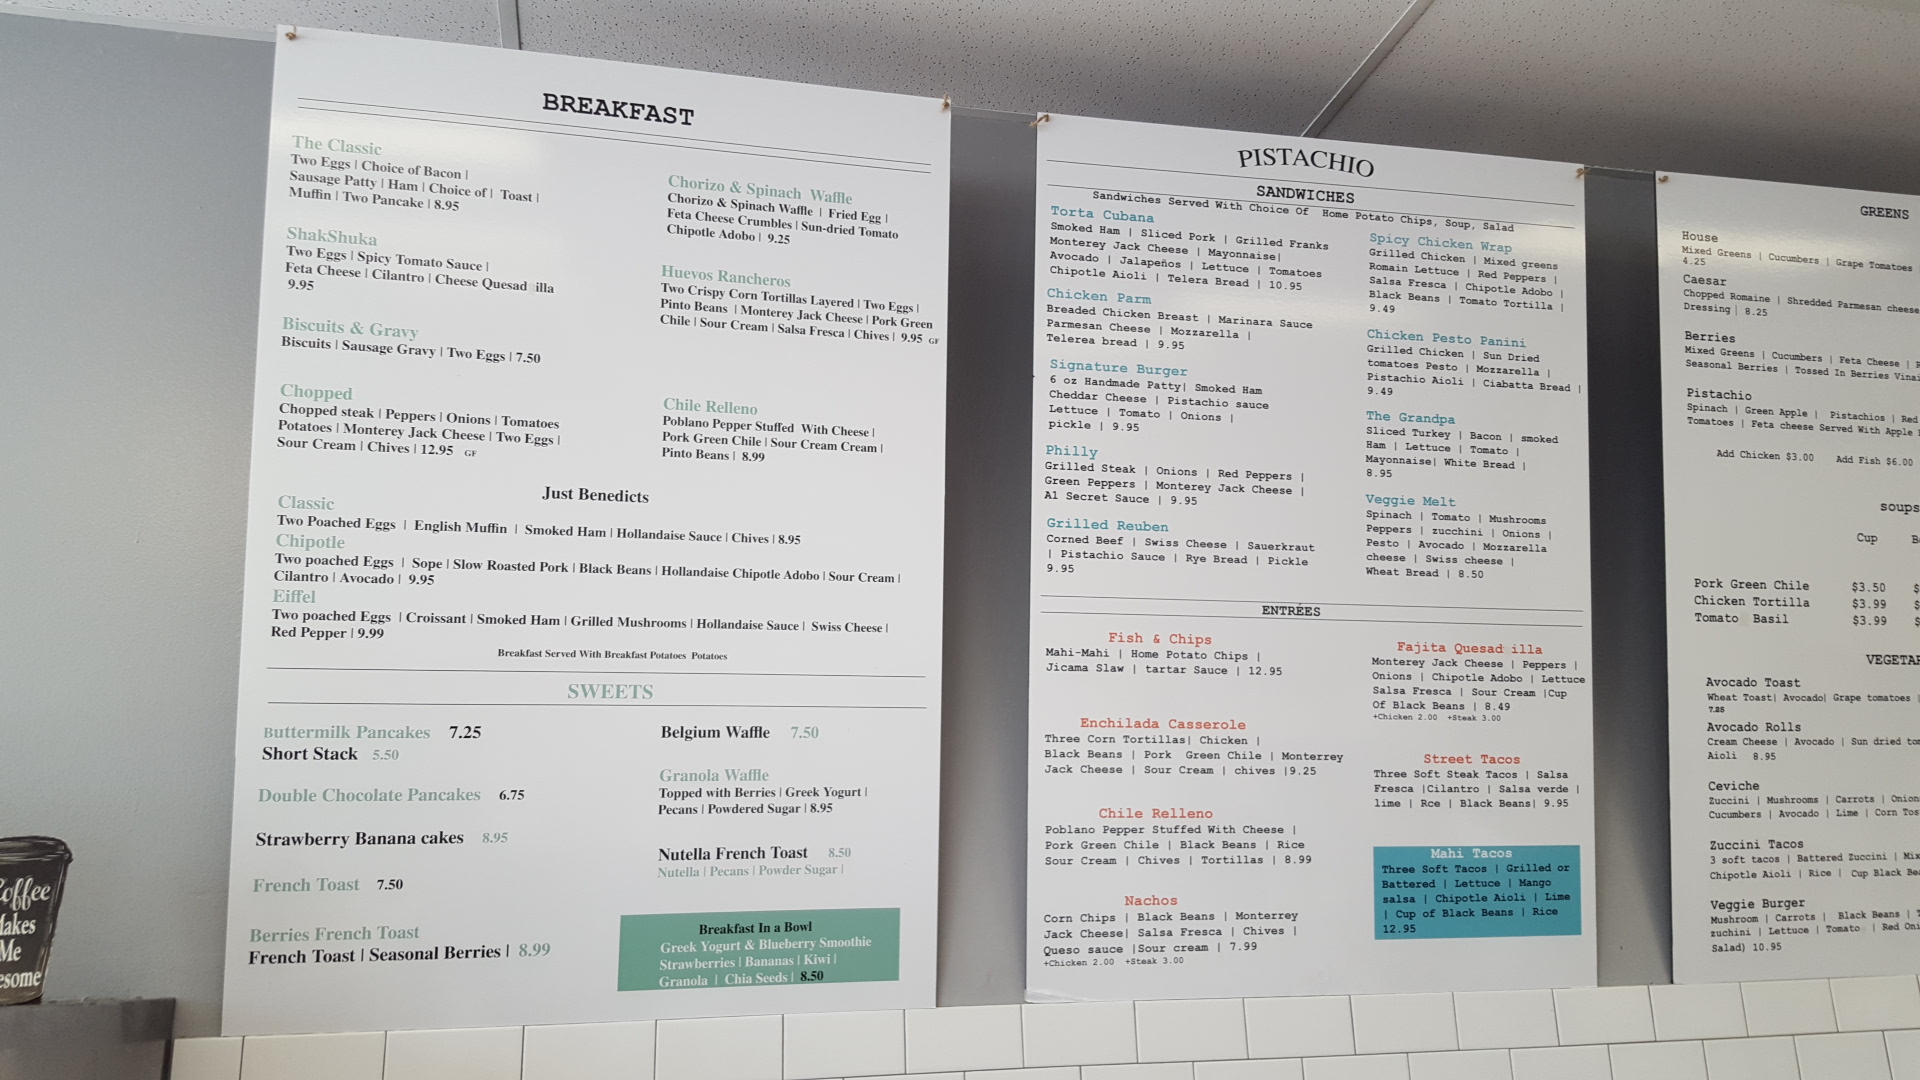 BREAKFAST
The Classic
Two Eggs | Choice of Bacon |
Sausage Patty | Ham | Choice of | Toast |
Muffin | Two Pancake | 8.95
ShakShuka
Two Eggs | Spicy Tomato Sauce |
Feta Cheese | Cilantro | Cheese Quesad illa
9.95
Biscuits & Gravy
Biscuits | Sausage Gravy | Two Eggs | 7.50
Chopped
Chopped steak | Peppers | Onions | Tomatoes
Potatoes | Monterey Jack Cheese | Two Eggs |
Sour Cream | Chives | 12.95 GF
Chorizo & Spinach Waffle
Chorizo & Spinach Waffle | Fried Egg |
Feta Cheese Crumbles | Sun-dried Tomato
Chipotle Adobo | 9.25
Huevos Rancheros
Two Crispy Corn Tortillas Layered | Two Eggs |
Pinto Beans | Monterey Jack Cheese | Pork Green
Chile | Sour Cream | Salsa Fresca | Chives | 9.95 GF
Chile Relleno
Poblano Pepper Stuffed With Cheese |
Pork Green Chile | Sour Cream Cream |
Pinto Beans | 8.99
Just Benedicts
Classic
Two Poached Eggs | English Muffin | Smoked Ham | Hollandaise Sauce | Chives | 8.95
Chipotle
Two poached Eggs | Sope | Slow Roasted Pork | Black Beans | Hollandaise Chipotle Adobo | Sour Cream |
Cilantro | Avocado | 9.95
Eiffel
Two poached Eggs | Croissant | Smoked Ham | Grilled Mushrooms | Hollandaise Sauce | Swiss Cheese |
Red Pepper | 9.99
Breakfast Served With Breakfast Potatoes Potatoes
SWEETS
Buttermilk Pancakes 7.25
Short Stack 5.50
Double Chocolate Pancakes 6.75
Strawberry Banana cakes 8.95
French Toast 7.50
Berries French Toast
French Toast | Seasonal Berries | 8.99
Belgium Waffle 7.50
Granola Waffle
Topped with Berries | Greek Yogurt |
Pecans | Powdered Sugar | 8.95
Nutella French Toast 8.50
Nutella | Pecans | Powder Sugar |
Breakfast In a Bowl
Greek Yogurt & Blueberry Smoothie
Strawberries | Bananas | Kiwi |
Granola | Chia Seeds | 8.50
PISTACHIO
SANDWICHES
Sandwiches Served With Choice Of Home Potato Chips, Soup, Salad
Torta Cubana
Smoked Ham | Sliced Pork | Grilled Franks
Monterey Jack Cheese | Mayonnaise|
Avocado | Jalapeños | Lettuce | Tomatoes
Chipotle Aioli | Telera Bread | 10.95
Chicken Parm
Breaded Chicken Breast | Marinara Sauce
Parmesan Cheese | Mozzarella |
Telerea bread | 9.95
Signature Burger
6 oz Handmade Patty| Smoked Ham
Cheddar Cheese | Pistachio sauce
Lettuce | Tomato | Onions |
pickle | 9.95
Philly
Grilled Steak | Onions | Red Peppers |
Green Peppers | Monterey Jack Cheese |
A1 Secret Sauce | 9.95
Grilled Reuben
Corned Beef | Swiss Cheese | Sauerkraut
| Pistachio Sauce | Rye Bread | Pickle
9.95
Spicy Chicken Wrap
Grilled Chicken | Mixed greens
Romain Lettuce | Red Peppers |
Salsa Fresca | Chipotle Adobo |
Black Beans | Tomato Tortilla |
9.49
Chicken Pesto Panini
Grilled Chicken | Sun Dried
tomatoes Pesto | Mozzarella |
Pistachio Aioli | Ciabatta Bread |
9.49
The Grandpa
Sliced Turkey | Bacon | smoked
Ham | Lettuce | Tomato |
Mayonnaise| White Bread |
8.95
Veggie Melt
Spinach | Tomato | Mushrooms
Peppers | zucchini | Onions |
Pesto | Avocado | Mozzarella
cheese | Swiss cheese |
Wheat Bread | 8.50
ENTRÉES
Fish & Chips
Mahi-Mahi | Home Potato Chips |
Jicama Slaw | tartar Sauce | 12.95
Enchilada Casserole
Three Corn Tortillas| Chicken |
Black Beans | Pork Green Chile | Monterrey
Jack Cheese | Sour Cream | chives |9.25
Chile Relleno
Poblano Pepper Stuffed With Cheese |
Pork Green Chile | Black Beans | Rice
Sour Cream | Chives | Tortillas | 8.99
Nachos
Corn Chips | Black Beans | Monterrey
Jack Cheese| Salsa Fresca | Chives |
Queso sauce |Sour cream | 7.99
+Chicken 2.00 +Steak 3.00
Fajita Quesad illa
Monterey Jack Cheese | Peppers |
Onions | Chipotle Adobo | Lettuce
Salsa Fresca | Sour Cream |Cup
Of Black Beans | 8.49
+Chicken 2.00 +Steak 3.00
Street Tacos
Three Soft Steak Tacos | Salsa
Fresca |Cilantro | Salsa verde |
lime | Rce | Black Beans| 9.95
Mahi Tacos
Three Soft Tacos | Grilled or
Battered | Lettuce | Mango
salsa | Chipotle Aioli | Lime
| Cup of Black Beans | Rice
12.95
GREENS
House
Mixed Greens | Cucumbers | Grape Tomatoes
4.25
Caesar
Chopped Romaine | Shredded Parmesan cheese
Dressing | 8.25
Berries
Mixed Greens | Cucumbers | Feta Cheese |
Seasonal Berries | Tossed In Berries
Pistachio
Spinach | Green Apple | Pistachios | Red
Tomatoes | Feta cheese Served With Apple
Add Chicken $3.00 Add Fish $6.00
soups
Cup
Pork Green Chile $3.50
Chicken Tortilla $3.99
Tomato Basil $3.99
Avocado Toast
Wheat Toast| Avocado| Grape tomatoes |
7.25
Avocado Rolls
Cream Cheese | Avocado | Sun dried
Aioli 8.95
Ceviche
Zuccini | Mushrooms | Carrots |
Cucumbers | Avocado | Lime | Corn
Zuccini Tacos
3 soft tacos | Battered Zuccini |
Chipotle Aioli | Rice | Cup Black
Veggie Burger
Mushroom | Carrots | Black Beans |
zuchini | Lettuce | Tomato | Red
Salad) 10.95
Coffee
Makes
Me